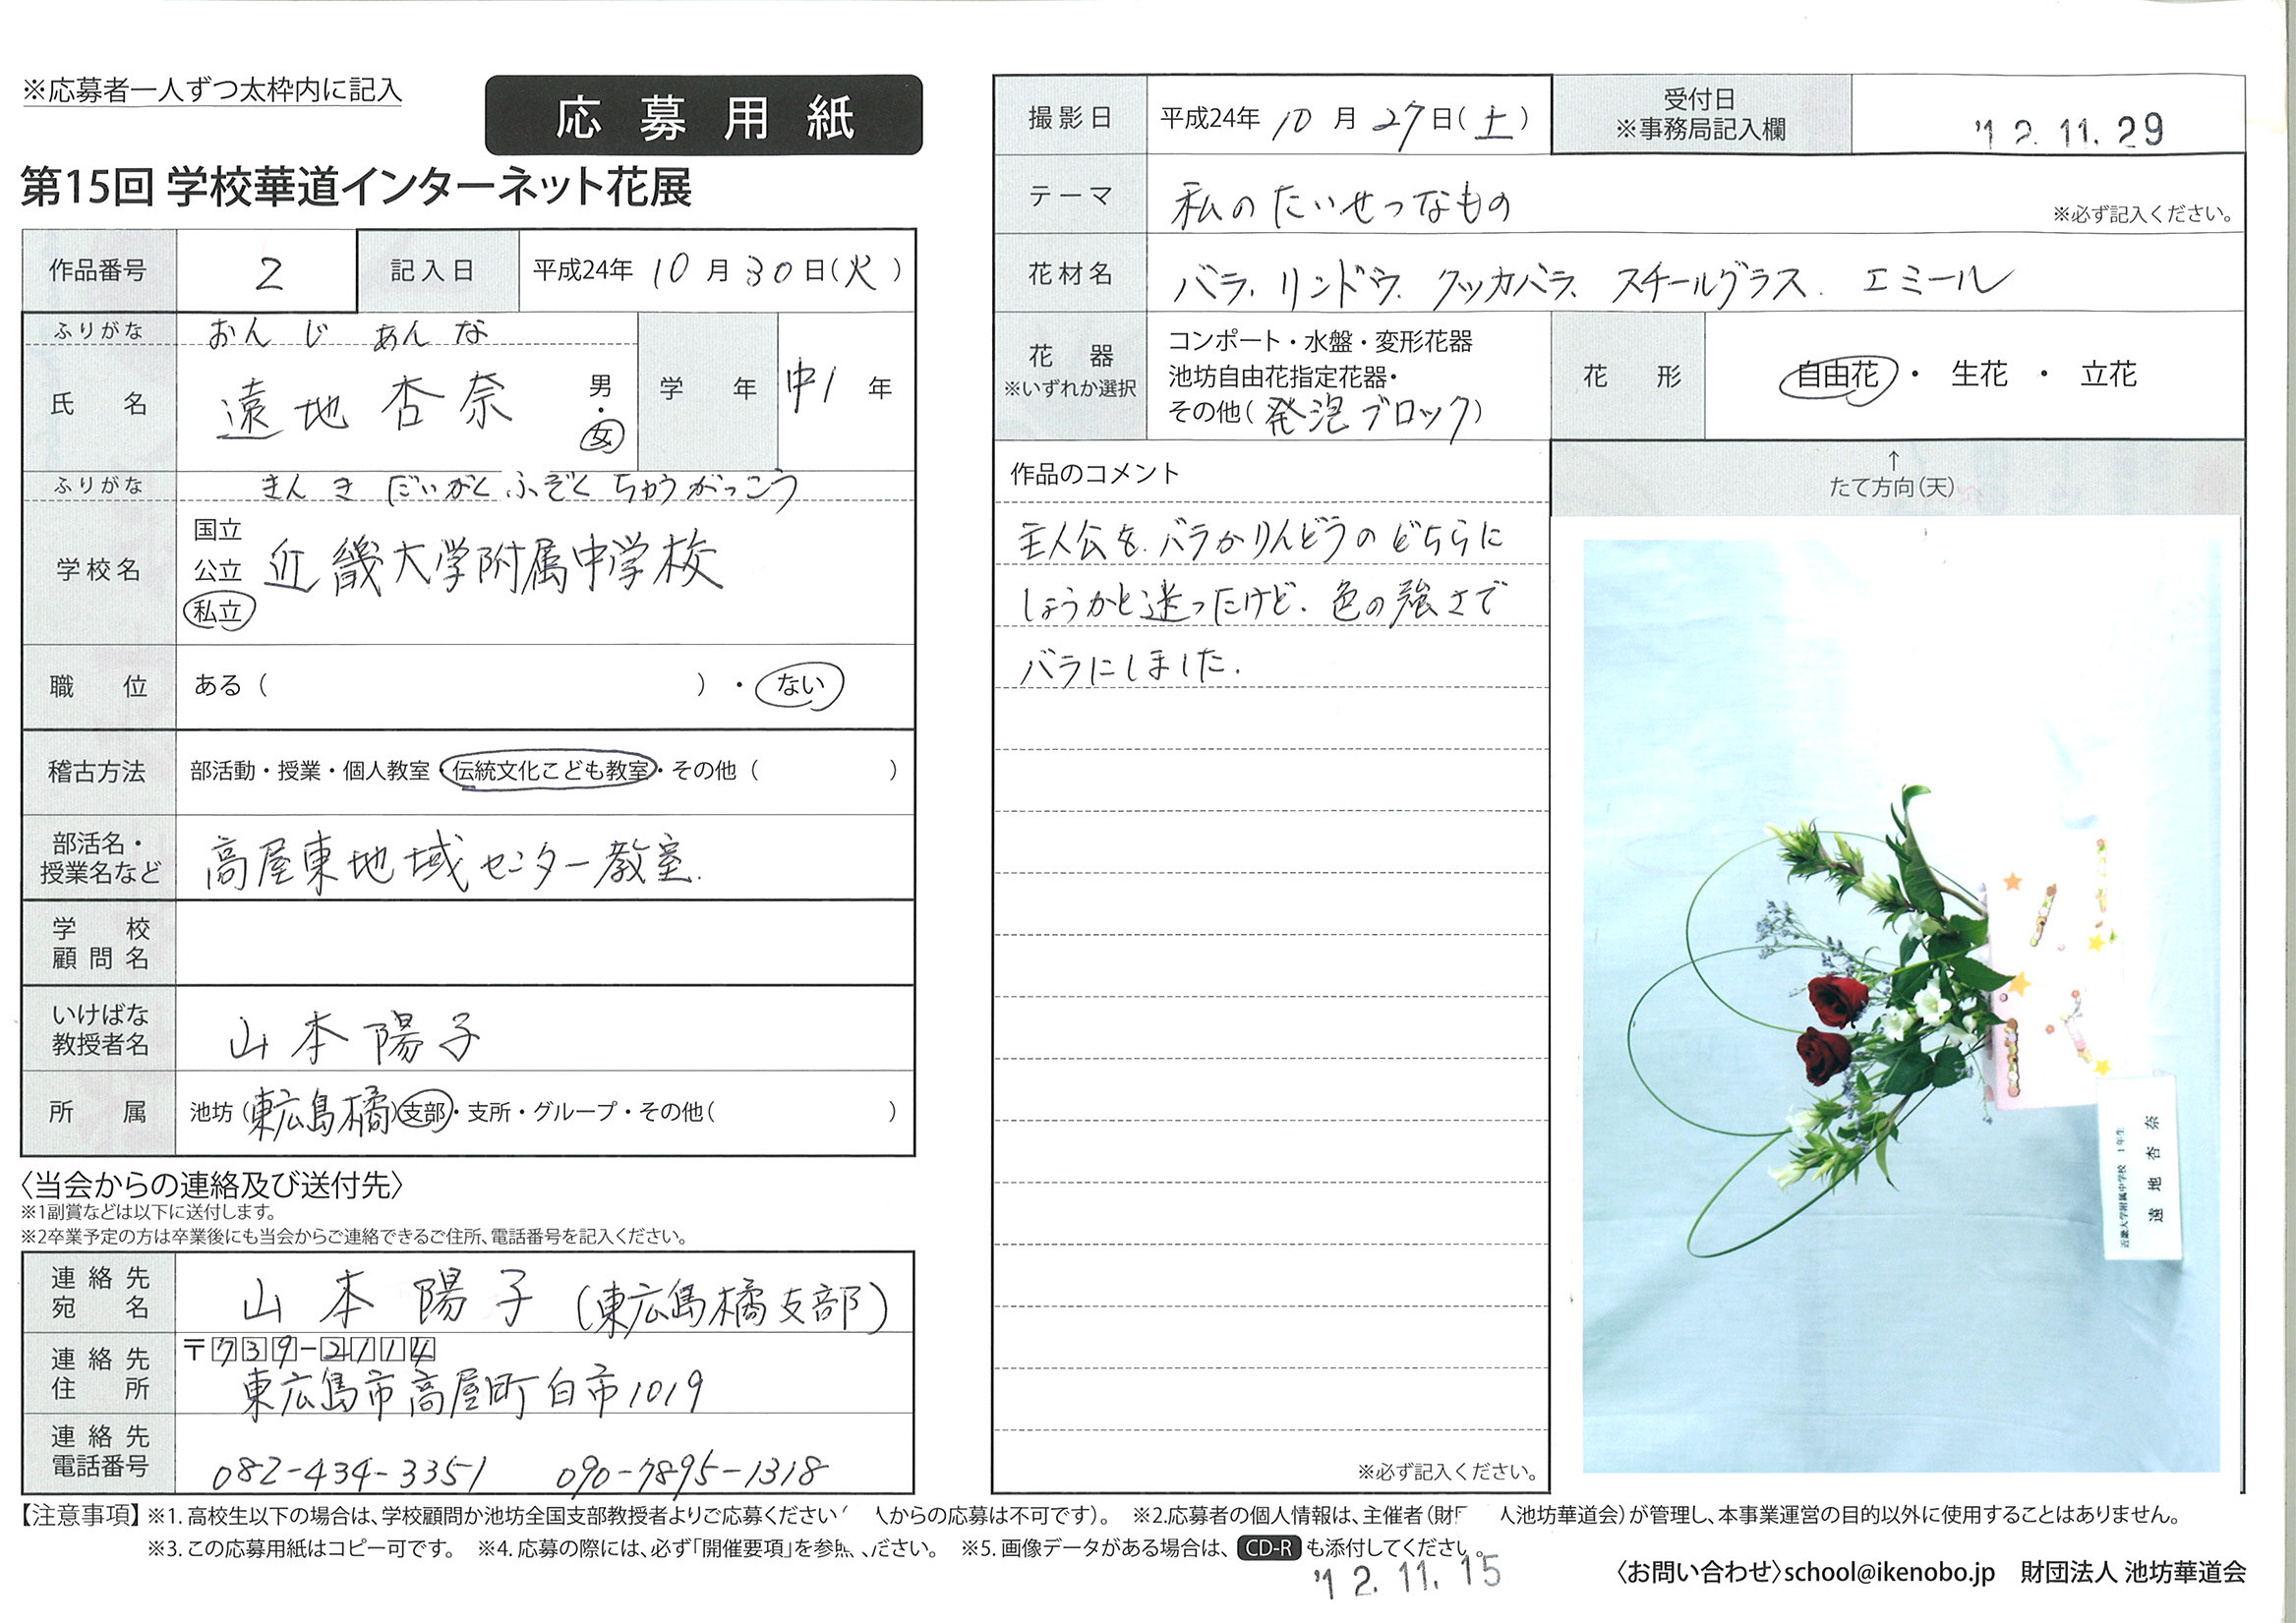 ※応募者一人ずつ太枠内に記入
応募用紙
第15回 学校華道インターネット花展
作品番号 2 記入日 平成24年 10月30日(火)
ふりがな おんじ あんな
氏名 遠地 杏奈 男・女 学年 中1年
ふりがな きんきだいがくふぞくちゅうがっこう
学校名 国立 公立 私立 近畿大学附属中学校
職位 ある( )・ない
稽古方法 部活動・授業・個人教室・伝統文化こども教室・その他( )
部活名・授業名など 高屋東地域センター教室.
学校顧問名
いけばな教授者名 山本陽子
所属 池坊(東広島橘)支部・支所・グループ・その他( )
〈当会からの連絡及び送付先〉
※1副賞などは以下に送付します。
※2卒業予定の方は卒業後にも当会からご連絡できるご住所、電話番号を記入ください。
連絡先宛名 山本陽子 (東広島橘支部)
連絡先住所 〒739-2114
東広島市高屋町白市1019
連絡先電話番号 082-434-3351 090-7895-1318
撮影日 平成24年 10月27日(土) 受付日 ※事務局記入欄 '12.11.29
テーマ 私のたいせつなもの ※必ず記入ください。
花材名 バラ、リンドウ、クッカバラ、スチールグラス、エミール
花器 ※いずれか選択 コンポート・水盤・変形花器
池坊自由花指定花器・
その他(発泡ブロック)
花形 自由花・生花・立花
作品のコメント
主人公を、バラかりんどうのどちらに
しようかと迷ったけど、色の強さで
バラにしました.
※必ず記入ください。
↑
たて方向(天)
近畿大学附属中学校 1年生
遠地杏奈
【注意事項】※1.高校生以下の場合は、学校顧問か池坊全国支部教授者よりご応募ください 人からの応募は不可です)。 ※2.応募者の個人情報は、主催者(財 人池坊華道会)が管理し、本事業運営の目的以外に使用することはありません。
※3.この応募用紙はコピー可です。 ※4.応募の際には、必ず「開催要項」を参照 ださい。 ※5.画像データがある場合は、CD-Rも添付してください。
'12.11.15
〈お問い合わせ〉school@ikenobo.jp 財団法人 池坊華道会